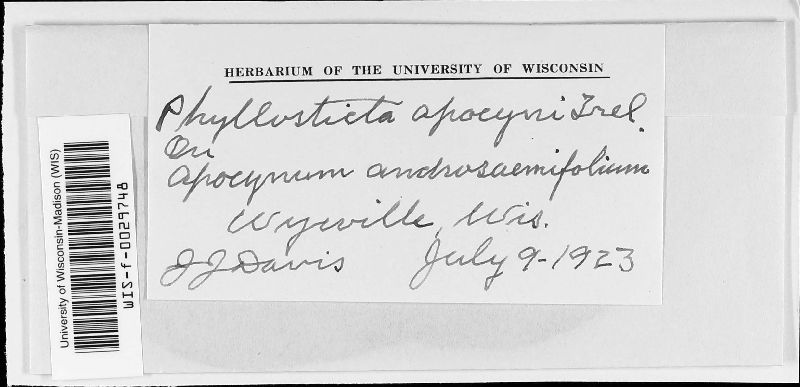 HERBARIUM OF THE UNIVERSITY OF WISCONSIN
Phyllosticta apocyni Trel.
On
Apocynum androsaemifolium
Wyeville, Wis.
JJ Davis July 9-1923
University of Wisconsin-Madison (WIS)
WIS-f-0029748